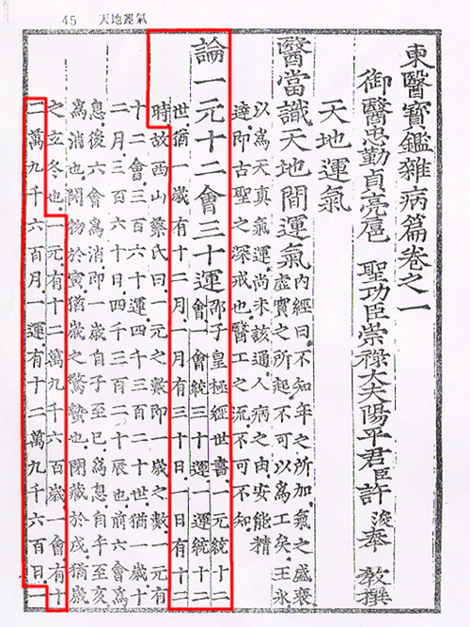 45 天地運氣
東醫寶鑑雜病篇卷之一
御醫忠勤貞亮扈聖功臣崇祿大夫陽平君臣許浚奉教撰
天地運氣
醫當識天地間運氣
內經曰不知年之所加氣之盛衰
虛實之所起不可以爲工矣王氷
以爲天真氣運尚未該通人病之由安能精
達即古聖之深戒也醫工之流不可不知
論一元十二會三十運
邵子皇極經世書一元統十二
會一會統三十運一運統十二
世猶一歲有十二月一月有三十日一日有十二
時故西山蔡氏曰一元之數即一歲之數一元有
十二會三百六十運四千三百二十世猶一歲十
二月三百六十日四千三百二十辰也前六會爲
息後六會爲消即一歲自子至巳爲息自午至亥
爲消也開物於寅猶歲之驚蟄也閉藏於戌猶歲
之立冬也一元有十二萬九千六百歲一會有十
二萬九千六百月一運有十二萬九千六百日一